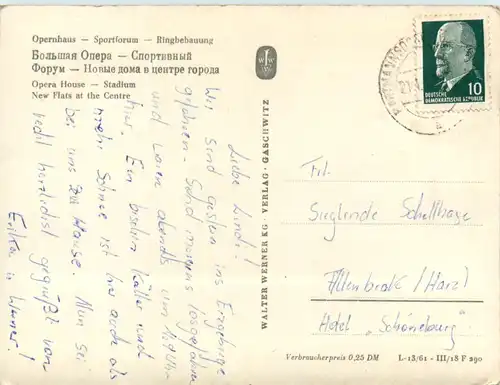 Opernhaus — Sportforum — Ringbebauung
Большая Опера — Спортивный
Форум — Новые дома в центре города
Opera House — Stadium
New Flats at the Centre
Liebe Lindi!
Wir sind gestern ins Erzgebirge
gefahren - Sind morgens losgefahren
und waren abends um
hier. Ein bischen kälter und
mehr Schnee ist hier auch als
bei uns zu Hause. Nun sei
recht herzlichst gegrüßt von
Erika u. Werner!
WALTER WERNER KG · VERLAG · GASCHWITZ
10
DEUTSCHE
DEMOKRATISCHE REPUBLIK
Frl.
Sieglinde Schellhase
Altenbrak / Harz
Hotel „Schöneburg"
Verbraucherpreis 0,25 DM L-13/61 - III/18 F 290